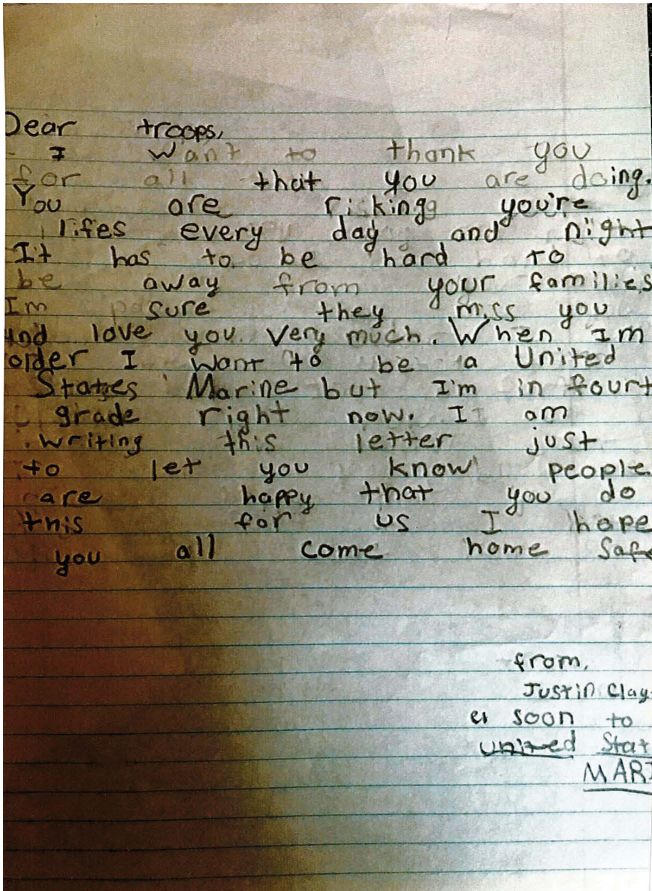 Dear troops,
I want to thank you
for all that you are doing.
You are risking you're
lifes every day and night
It has to be hard to
be away from your families
Im sure they miss you
and love you very much. When Im
older I want to be a United
States Marine but I'm in fourt
grade right now. I am
writing this letter just
to let you know people
are happy that you do
this for us I hope
you all come home safe
from,
Justin Clay
soon to
united Stat
MARI